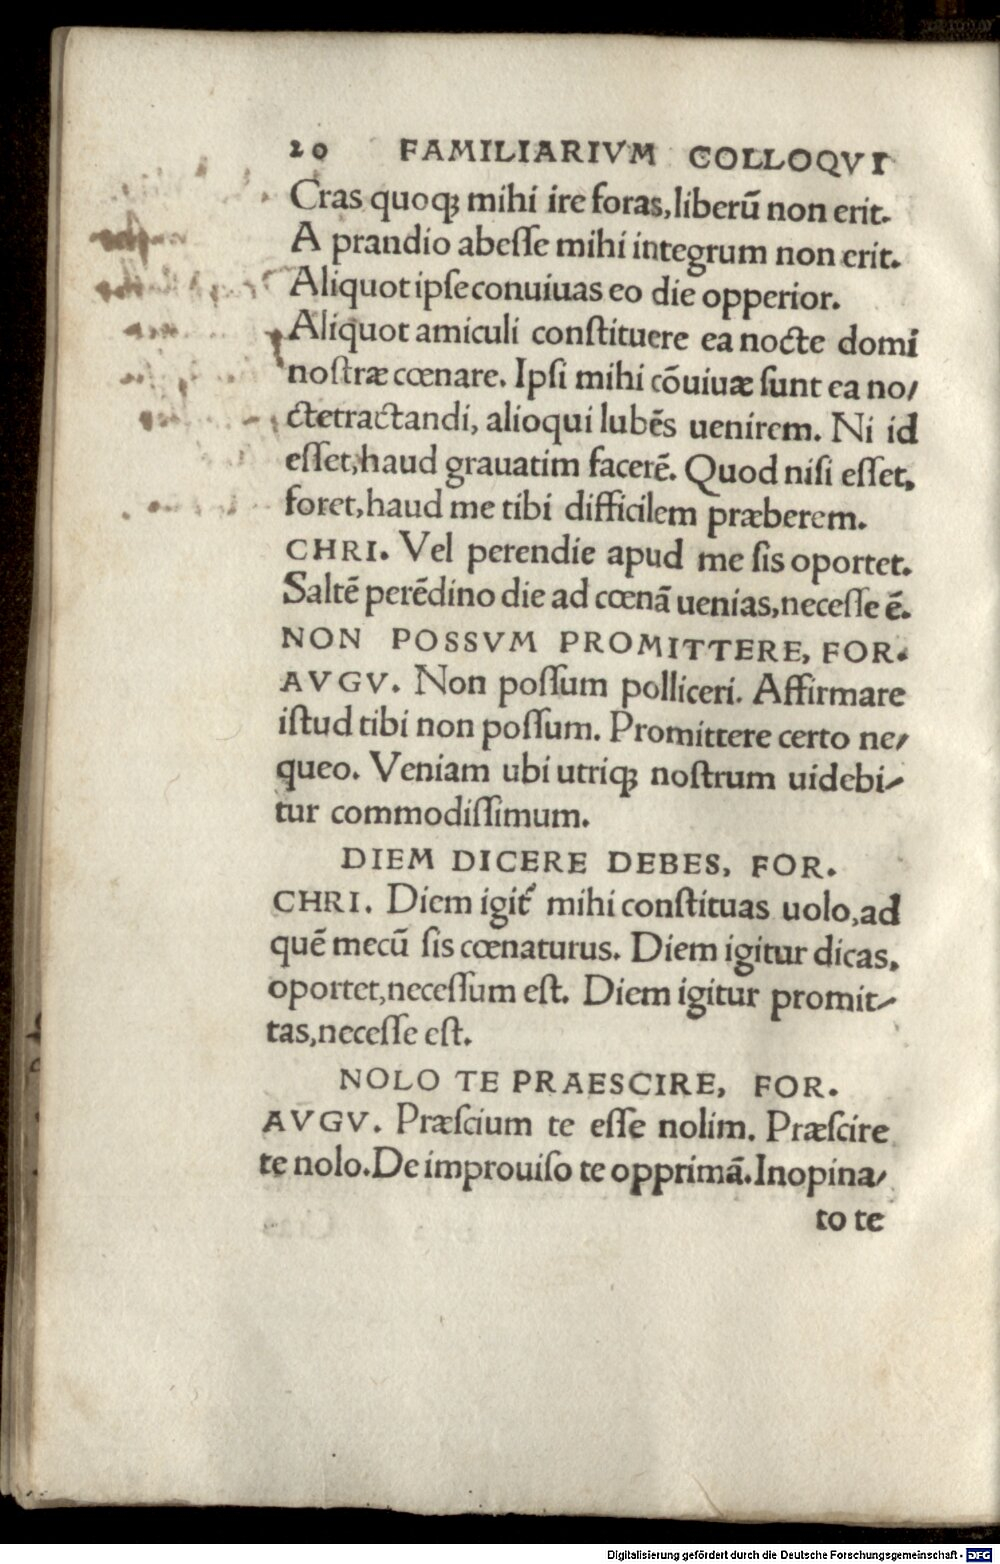 20 FAMILIARIVM COLLOQVI
Cras quoqꝫ mihi ire foras,liberū non erit.
A prandio abeſſe mihi integrum non erit.
Aliquot ipſe conuiuas eo die opperior.
Aliquot amiculi conſtituere ea nocte domi
noſtræ cœnare. Ipſi mihi cōuiuæ ſunt ea no/
cte tractandi, alioqui lubēs uenirem. Ni id
eſſet,haud grauatim facerē. Quod niſi eſſet,
foret,haud me tibi difficilem præberem.
CHRI. Vel perendie apud me ſis oportet.
Saltē perēdino die ad cœnā uenias,neceſſe ē.
NON POSSVM PROMITTERE, FOR.
AVGV. Non poſſum polliceri. Affirmare
iſtud tibi non poſſum. Promittere certo ne/
queo. Veniam ubi utriqꝫ noſtrum uidebi/
tur commodiſſimum.
DIEM DICERE DEBES, FOR.
CHRI. Diem igit᷑ mihi conſtituas uolo,ad
quē mecū ſis cœnaturus. Diem igitur dicas,
oportet,neceſſum eſt. Diem igitur promit/
tas,neceſſe eſt.
NOLO TE PRAESCIRE, FOR.
AVGV. Præſcium te eſſe nolim. Præſcire
te nolo.De improuiſo te opprimā.Inopina/
to te
Digitalisierung gefördert durch die Deutsche Forschungsgemeinschaft - DFG